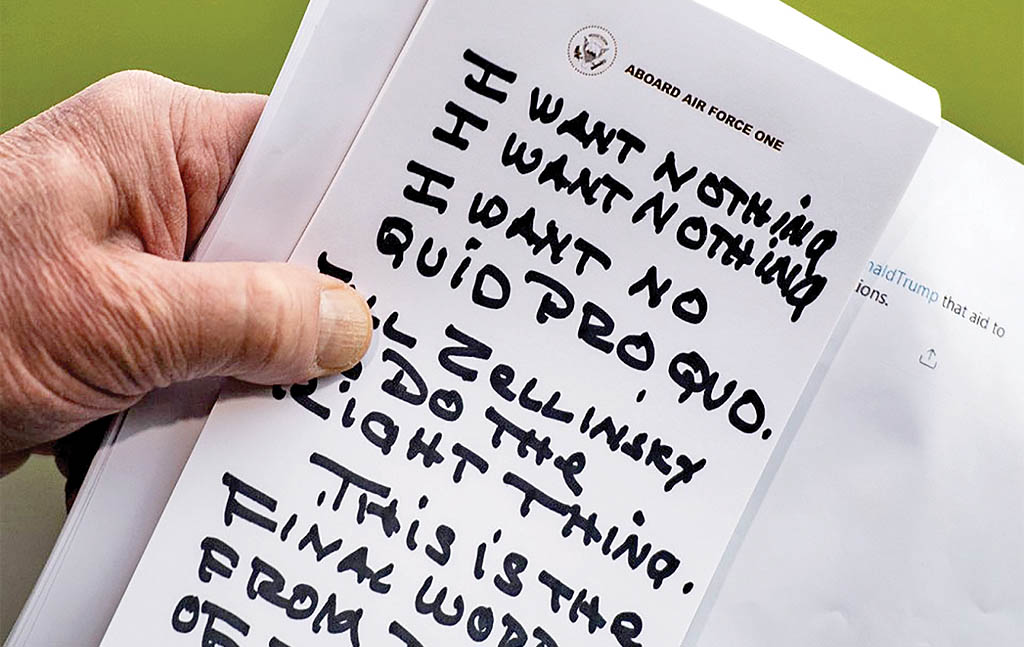 ABOARD AIR FORCE ONE
I WANT NOTHING
I WANT NOTHING
I WANT NO
QUID PRO QUO.
ZELLINSKY
DO THE
RIGHT THING.
THIS IS THE
FINAL WORD
FROM
OF
naldTrump that aid to
ions.